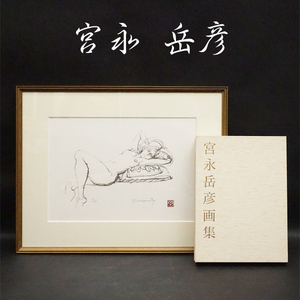 宮永 岳彦
宮永岳彦画集